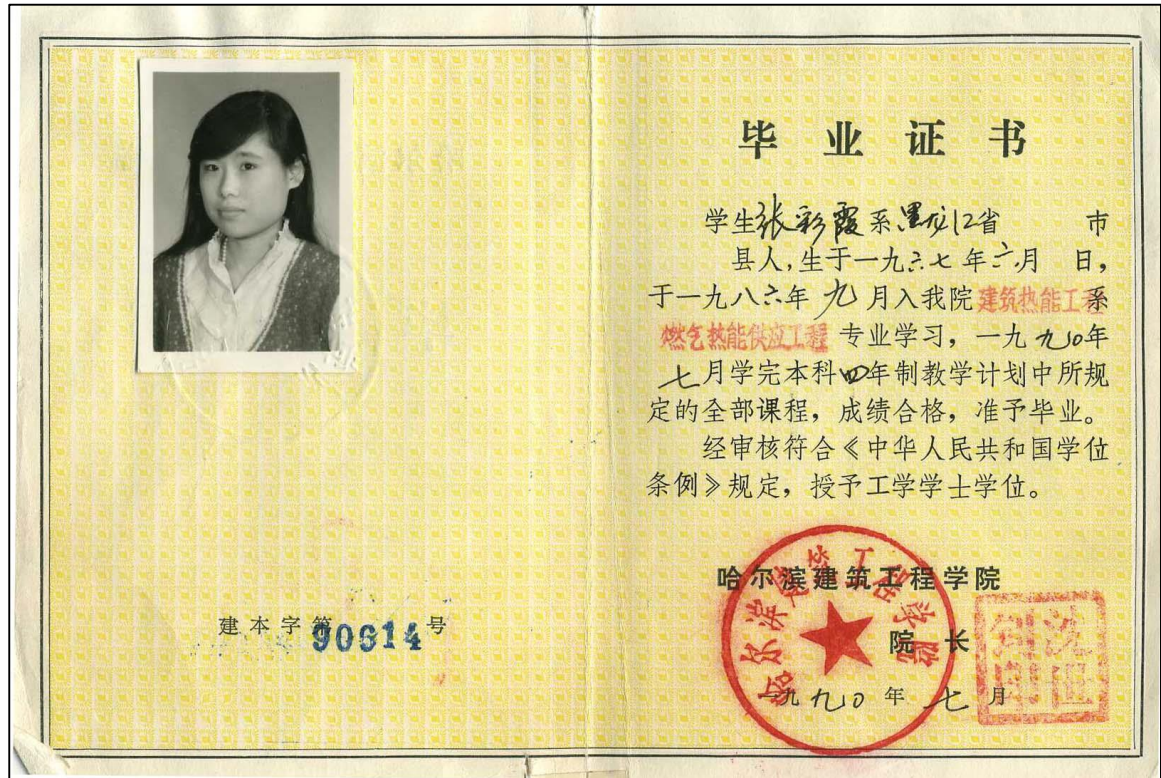 毕业证书
学生张彩霞系黑龙江省 市
县人,生于一九六七年六月 日,
于一九八六年九月入我院建筑热能工程系
燃气热能供应工程专业学习,一九九〇年
七月学完本科四年制教学计划中所规
定的全部课程,成绩合格,准予毕业。
经审核符合《中华人民共和国学位
条例》规定,授予工学学士学位。
哈尔滨建筑工程学院
哈尔滨建筑工程学院
院长
一九九〇年七月
建本字第90614号